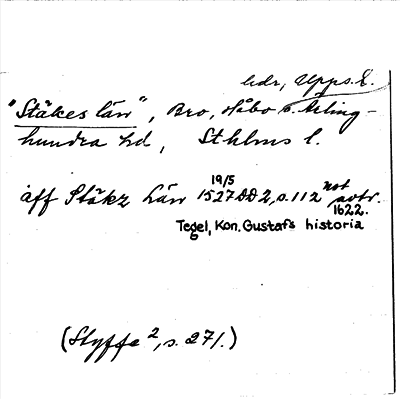 hdr, Upps. l.
"Stäkes län", Bro, Håbo o. Ærling-
hundra hd, Sthlms l.
19/5 not
åff Stäkz Län 1527 DD 2, s. 112 avtr.
1622.
Tegel, Kon. Gustafs historia
(Styffe 2, s. 271.)